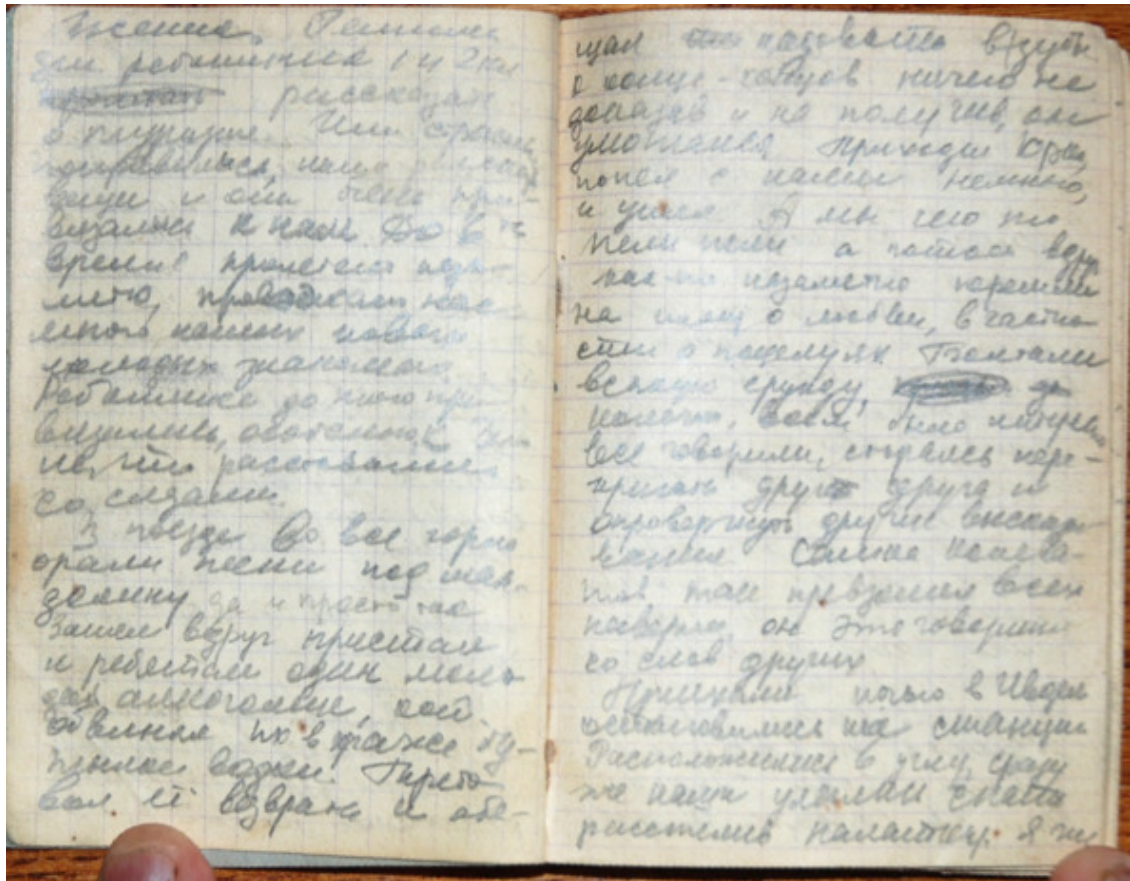 жение. Решили
для ребятишек 1 и 2 кл
рассказать
о туризме. Им страшно
понравились, наши
вещи и они очень при-
вязались к нам До 8 ч
время пролетело неза-
метно, провожали нас
много наших новых
молодых знакомых
Ребятишки до того при
вязались, особенно к
не, что расставались
со слезами.
В поезде во все горло
орали песни под ман-
долину да и просто так
Затем вдруг пристал
к ребятам один моло
дой алкоголик, кот.
обвинял их в краже бу-
тылки водки. Требо-
вал её возврата и обе-
щал надавать в зубы.
в конце-концов ничего не
доказав и не получив, он
умотался Приходил Юра,
попел с нами немного,
и ушел А мы что то
пели пели а потом вдруг
как-то незаметно перешли
на тему о любви, в частно
сти о поцелуях Трепали
всякую ерунду, да
конечно, всем было интересно
все говорили, старались пере-
кричать друг друга и
опровергнуть другие высказы
вания Сашка Колева-
тов там превзошел всех
наверно, он это говорит
со слов других
Приехали ночью в Ивдель
остановились на станции
Расположились в углу, сразу
же наши улеглись спать
расстелив палатку. Я